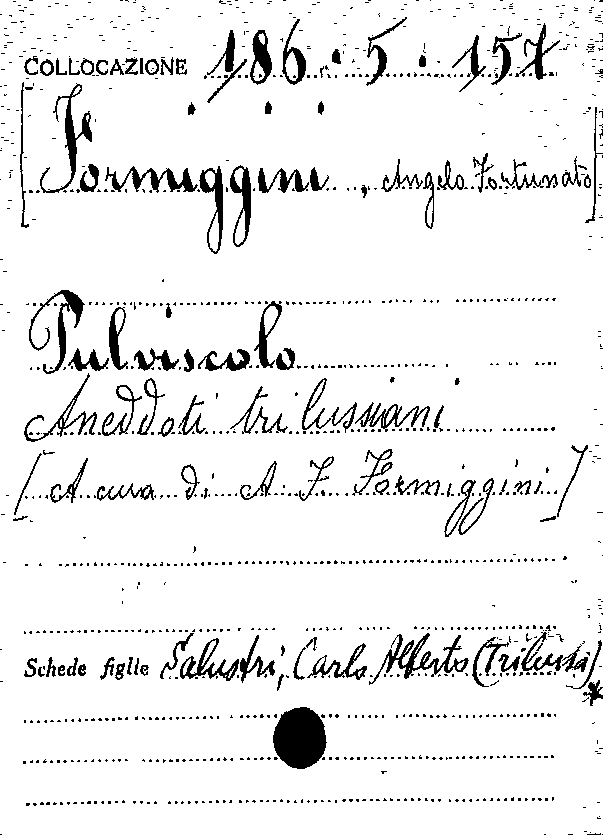 COLLOCAZIONE 186.5.157
[Formiggini, Angelo Fortunato]
Pulviscolo
Aneddoti trilussiani
[A cura di A. F. Formiggini]
Schede figlie Salustri, Carlo Alberto (Trilussa)
*